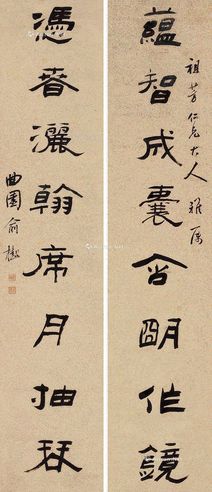 祖芳仁兄大人雅属
蘊智成囊含朙作鏡
憑春灑翰席月抽琹
曲園俞樾